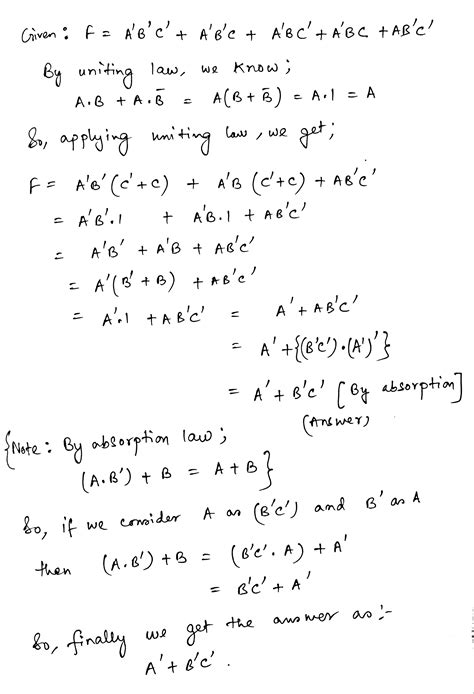 Given: F = A'B'C' + A'B'C + A'BC' + A'BC + AB'C'
By uniting law, we know;
A.B + A.B̄ = A(B+B̄) = A.1 = A
So, applying uniting law, we get;
F = A'B'(C'+C) + A'B(C'+C) + AB'C'
= A'B'.1 + A'B.1 + AB'C'
= A'B' + A'B + AB'C'
= A'(B'+B) + AB'C'
= A'.1 + AB'C' = A' + AB'C'
= A' + {(B'C').(A')'}
= A' + B'C' [By absorption]
(Answer)
{Note: By absorption law;
(A.B') + B = A+B}
So, if we consider A as (B'C') and B' as A
then (A.B') + B = (B'C'.A) + A'
= B'C' + A'
So, finally we get the answer as:-
A' + B'C'.